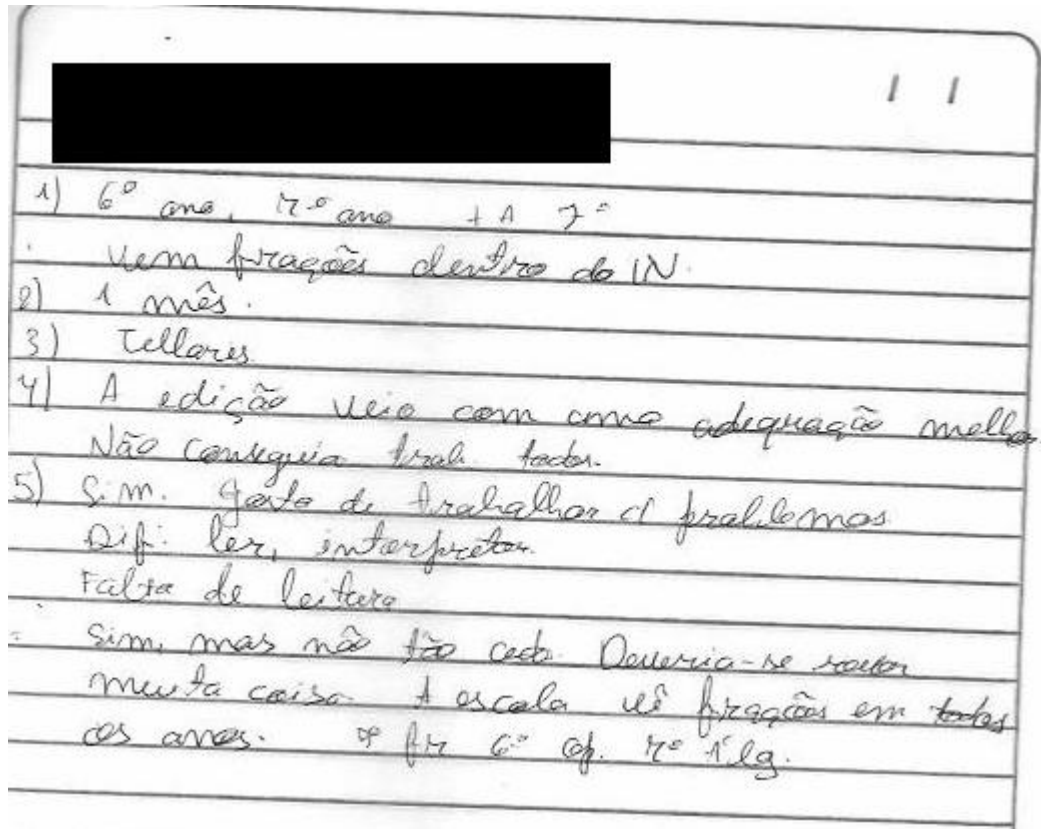 / /
1) 6º ano, 7º ano + 1 7º
Vem frações dentro do IN.
2) 1 mês.
3) Tellares
4) A edição veio com uma adequação melhor
Não conseguia trab. todos.
5) Sim. gosta de trabalhar c/ problemas
Dif: ler, interpretar.
Falta de leitura
Sim, mas não tão cedo. Deveria-se
muita coisa. A escola vê frações em todos
os anos. fr 6º op. 7º